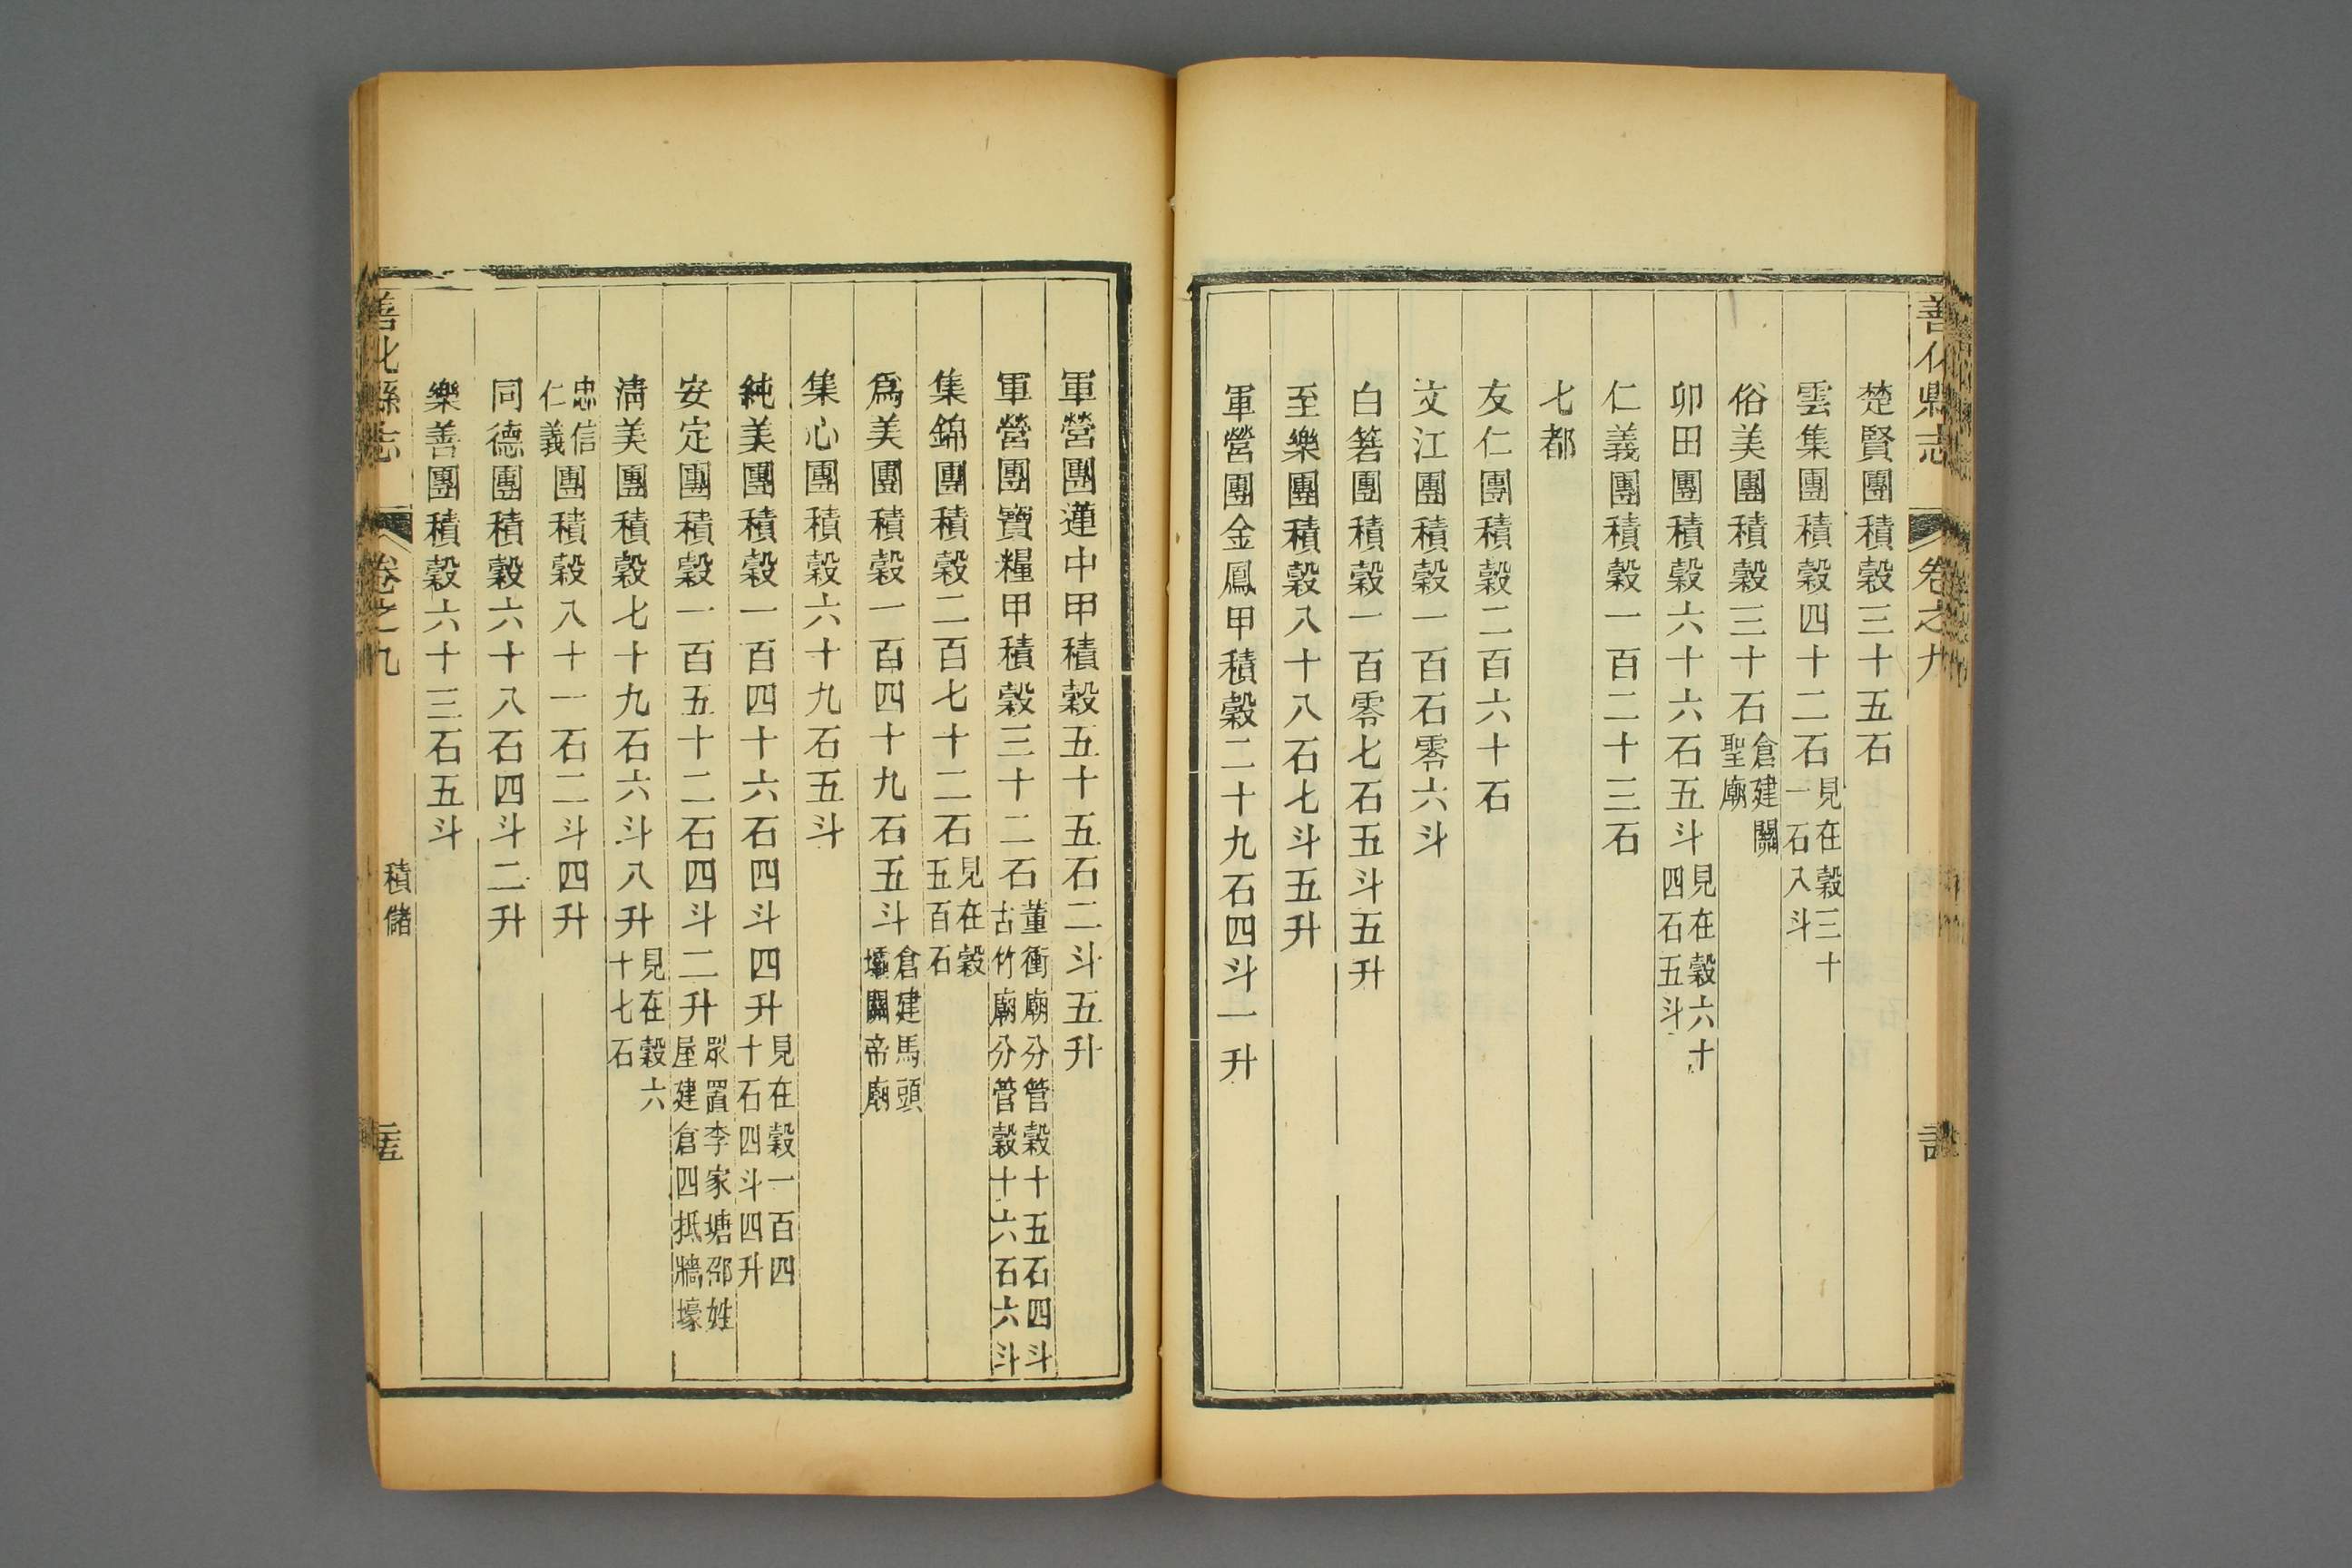 善化縣志
卷之九
楚賢團積穀三十五石
雲集團積穀四十二石見在穀三十一石八斗
俗美團積穀三十石倉建關聖廟
卯田團積穀六十六石五斗見在穀六十四石五斗
仁義團積穀一百二十三石
七都
友仁團積穀二百六十石
文江團積穀一百石零六斗
白箬團積穀一百零七石五斗五升
至樂團積穀八十八石七斗五升
軍營團金鳳甲積穀二十九石四斗一升
軍營團蓮中甲積穀五十五石二斗五升
軍營團寶糧甲積穀三十二石董衝廟分管穀十五石四斗古竹廟分管穀十六石六斗
集錦團積穀二百七十二石見在穀五百石
爲美團積穀一百四十九石五斗倉建馬頭壋關帝廟
集心團積穀六十九石五斗
純美團積穀一百四十六石四斗四升見在穀一百四十石四斗四升
安定團積穀一百五十二石四斗二升眾置李家塘邵姓屋建倉四抵牆壕
清美團積穀七十九石六斗八升見在穀六十七石
忠信仁義團積穀八十一石二斗四升
同德團積穀六十八石四斗二升
樂善團積穀六十三石五斗
善化縣志
卷之九
積儲